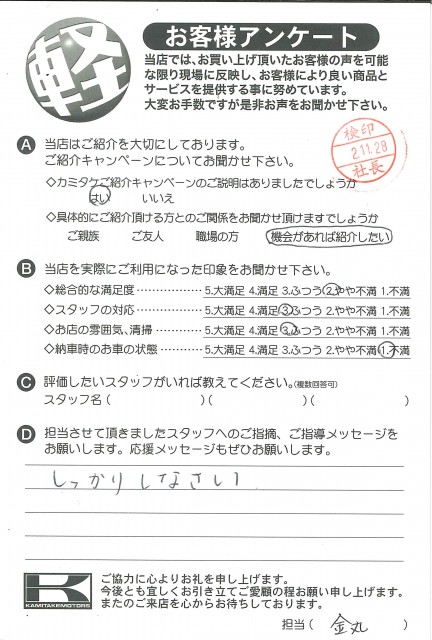 軽
お客様アンケート
当店では、お買い上げ頂いたお客様の声を可能
な限り現場に反映し、お客様により良い商品と
サービスを提供する事に努めています。
大変お手数ですが是非お声をお聞かせ下さい。
検印
2.11.28
社長
A 当店はご紹介を大切にしております。
ご紹介キャンペーンについてお聞かせ下さい。
◇カミタケご紹介キャンペーンのご説明はありましたでしょうか
はい いいえ
◇具体的にご紹介頂ける方とのご関係をお聞かせ頂けますでしょうか
ご親族 ご友人 職場の方 機会があれば紹介したい
B 当店を実際にご利用になった印象をお聞かせ下さい。
◇総合的な満足度 ・・・・・・・・・・・・・・ 5.大満足 4.満足 3.ふつう 2.やや不満 1.不満
◇スタッフの対応 ・・・・・・・・・・・・・・ 5.大満足 4.満足 3.ふつう 2.やや不満 1.不満
◇お店の雰囲気、清掃 ・・・・・・・・・・ 5.大満足 4.満足 3.ふつう 2.やや不満 1.不満
◇納車時のお車の状態 ・・・・・・・・・ 5.大満足 4.満足 3.ふつう 2.やや不満 1.不満
C 評価したいスタッフがいれば教えてください。(複数回答可)
スタッフ名 ( )( )( )
D 担当させて頂きましたスタッフへのご指摘、ご指導メッセージを
お願いします。応援メッセージもぜひお願いします。
しっかりしなさい
K
KAMITAKEMOTORS
ご協力に心よりお礼を申し上げます。
今後とも宜しくお引き立てご愛顧の程お願い申し上げます。
またのご来店を心からお待ちしております。
担当 ( 金丸 )